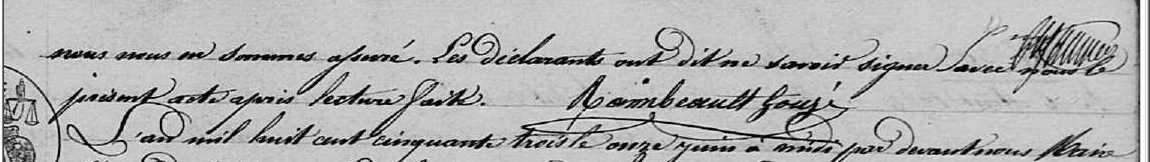 nous nous en sommes assuré. Les déclarants ont dit ne savoir signer avec nous le
présent acte après lecture faite. Raimbeault Gouzé
L'an mil huit cent cinquante trois le onze juin à midi par devant nous Maire